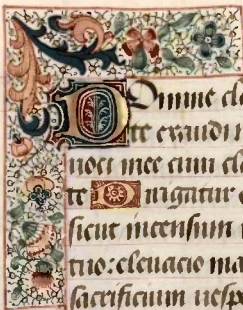 Domine cla
te exaudi
uoci mee cum cla
te Dirigatur
sicut incensum
tuo: eleuacio ma
sacrificium uesp